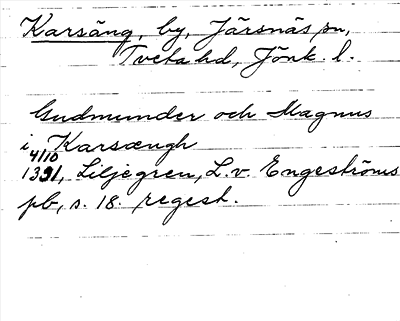 Karsäng, by, Järsnäs sn,
Tveta hd, Jönk. l.
Gudmunder och Magnus
i Karsængh
4/10
1391, Liljegren, L. v. Engeströms
pb, s. 18. regest.